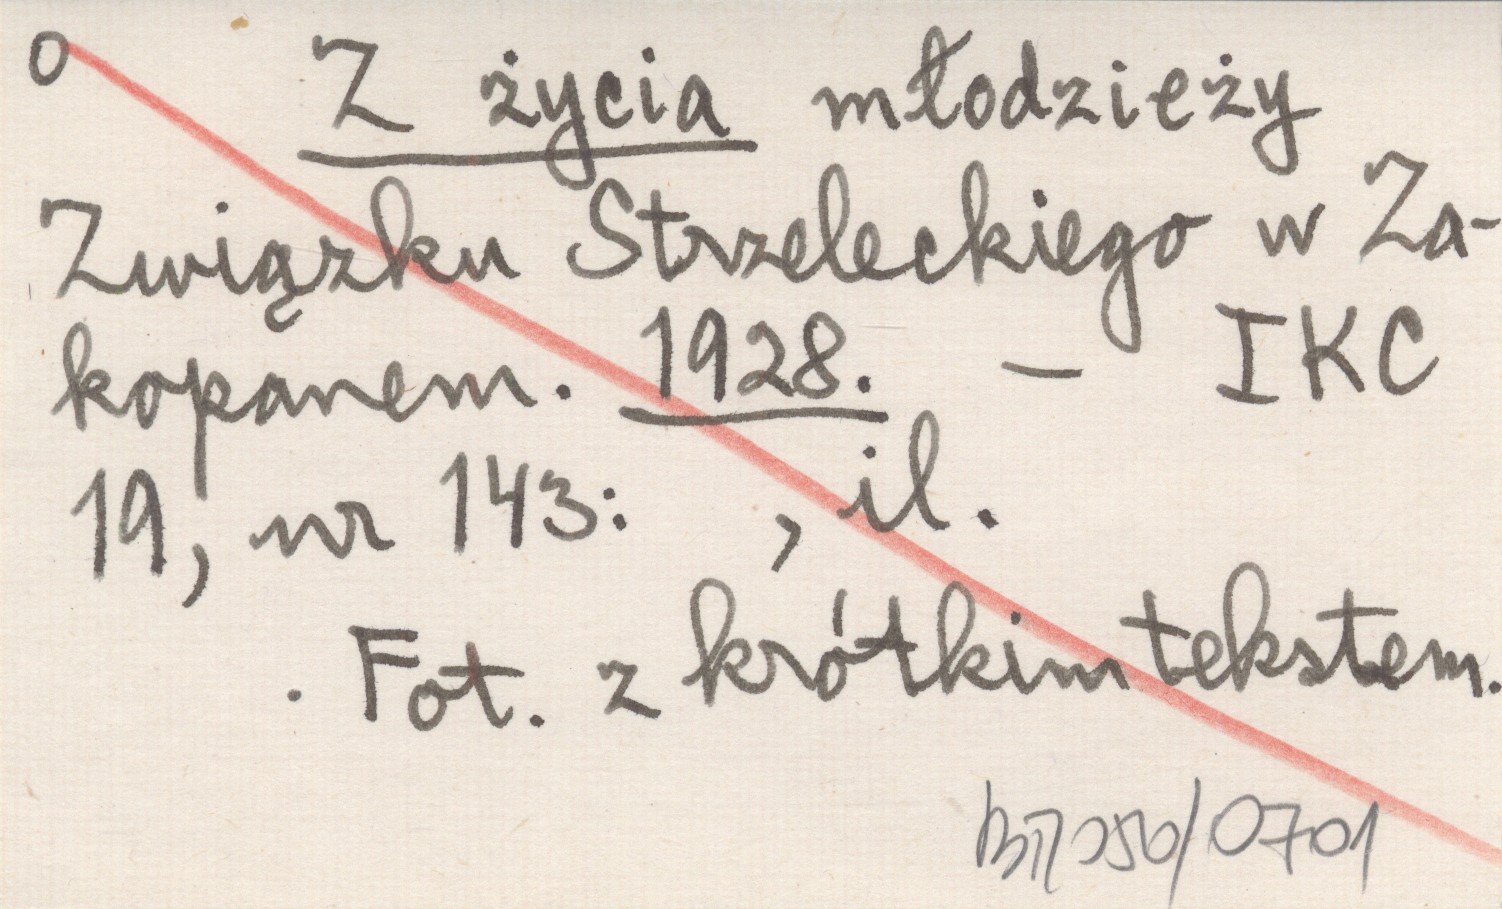 o Z życia młodzieży
Związku Strzeleckiego w Za-
kopanem. 1928. — IKC
19, nr 143: , il.
. Fot. z krótkim tekstem.
/0701